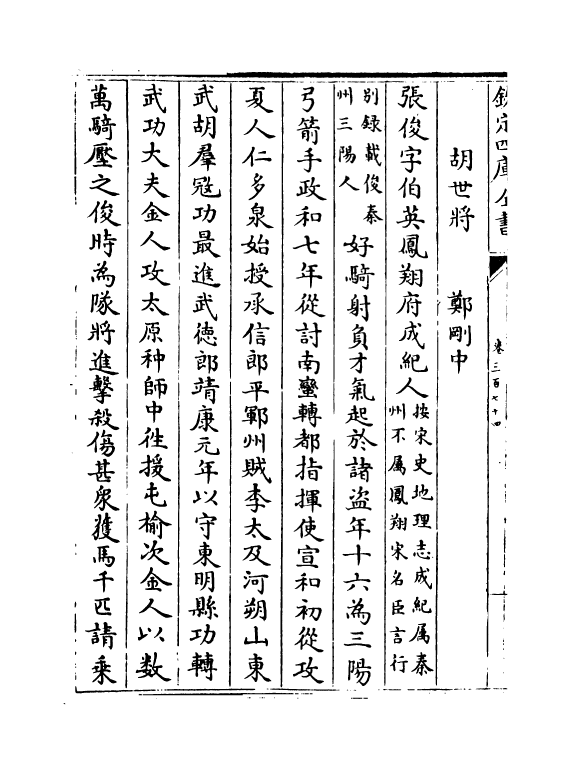 欽定四庫全書
卷三百七十四
胡世將 鄭剛中
張俊字伯英鳳翔府成紀人按宋史地理志成紀屬秦
州不屬鳳翔宋名臣言行
別録載俊秦
州三陽人好騎射負才氣起於諸盜年十六為三陽
弓箭手政和七年從討南蠻轉都指揮使宣和初從攻
夏人仁多泉始授承信郎平鄆州賊李太及河朔山東
武胡羣冦功最進武德郎靖康元年以守東明縣功轉
武功大夫金人攻太原种師中徃援屯榆次金人以数
萬騎壓之俊時為隊將進擊殺傷甚衆獲馬千匹請乗